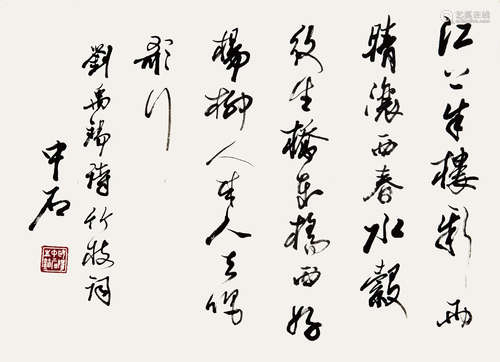 江上朱樓新雨
晴瀼西春水縠
纹生橋东橋西好
楊柳人来人去唱
歌行
劉禹錫詩竹枝詞
中石
艺狐在线